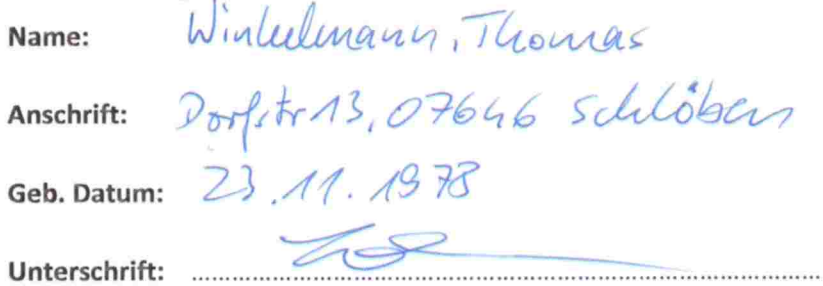 Name: Winkelmann, Thomas
Anschrift: Dorfstr 13, 07646 Schlöben
Geb. Datum: 23.11.1978
Unterschrift: